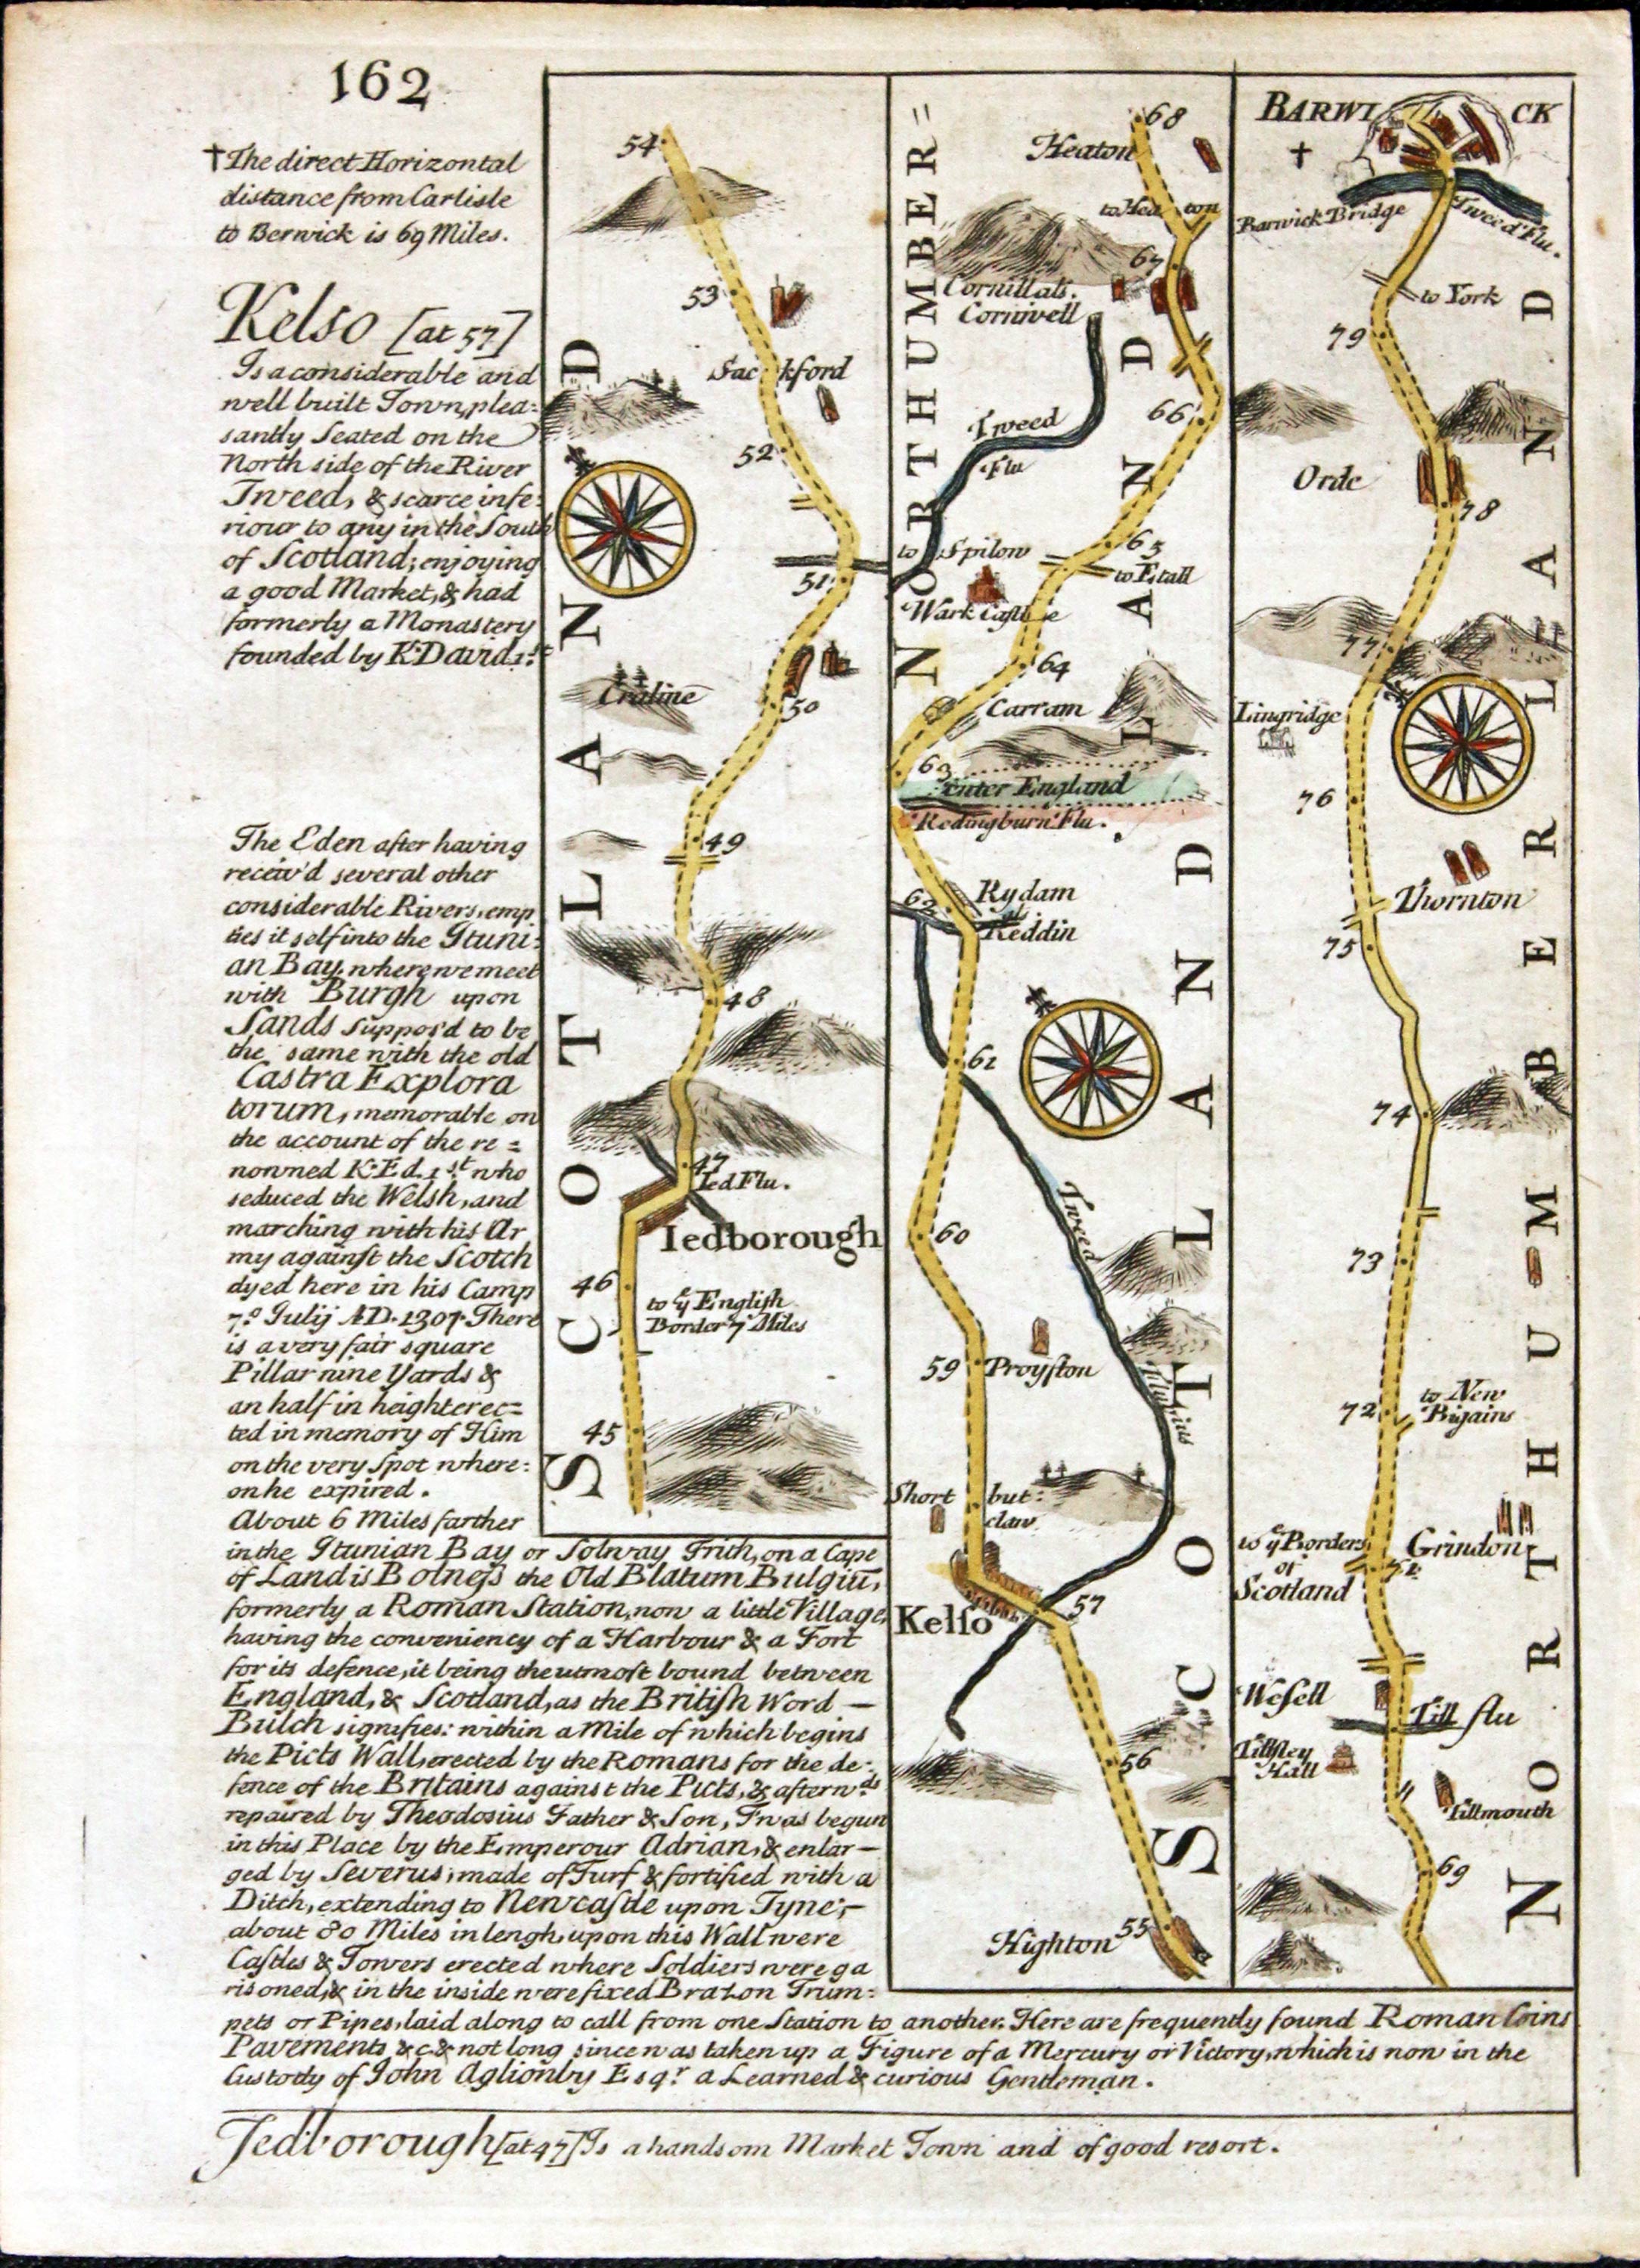 162
†The direct Horizontal
distance from Carlisle
to Berwick is 69 Miles.
Kelso [at 57]
Is a considerable and
well built Town, plea=
santly Seated on the
North side of the River
Tweed, & scarce infe=
riour to any in the South
of Scotland; enjoying
a good Market, & had
formerly a Monastery
founded by K. David 1.st
The Eden after having
receiv'd several other
considerable Rivers, emp
ties it self into the Ituni=
an Bay, where we meet
with Burgh upon
Sands Suppos'd to be
the same with the old
Castra Explora
torum, memorable on
the account of the re=
nowned K. Ed. 1.st who
seduced the Welsh, and
marching with his Ar
my against the Scotch
dyed here in his Camp
7.o Julij AD. 1307. There
is a very fair square
Pillar nine Yards &
an half in height erec=
ted in memory of Him
on the very Spot where:
on he expired.
About 6 Miles farther
in the Itunian Bay or Solway Frith, on a Cape
of Land is Bolness the Old Blatum Bulgiū,
formerly a Roman Station, now a little Village,
having the conveniency of a Harbour & a Fort
for its defence, it being the utmost bound between
England, & Scotland, as the British Word —
Bulch signifies: within a Mile of which begins
the Picts Wall, erected by the Romans for the de=
fence of the Britains against the Picts, & afterw.ds
repaired by Theodosius Father & Son, Twas begun
in this Place by the Emperour Adrian, & enlar—
ged by Severus, made of Turf & fortified with a
Ditch, extending to Newcastle upon Tyne,—
about 80 Miles in lengh, upon this Wall were
Castles & Towers erected where Soldiers were ga
risoned, & in the inside were fixed Brazon Trum=
pets or Pipes, laid along to call from one Station to another. Here are frequently found Roman Coins
Pavements &c. & not long since was taken up a Figure of a Mercury or Victory, which is now in the
Custody of John Aglionby Esq.r a Learned & curious Gentleman.
Jedborough [at 47] Is a handsom Market Town and of good resort.
SCOTLAND
54
53
Sackford
52
51
50
Craline
49
48
47
Ied Flu.
Iedborough
46
to y.e English
Border 7 Miles
45
NORTHUMBER=
LAND
68
Heaton
to Heaton
67
Cornill als.
Cornwell
66
Tweed
Flu
65
to Spilow
to Etall
Wark Castle
64
Carram
63
enter England
Redingburn Flu.
Rydam
als.
Reddin
62
61
60
Tweed
Fluvius
59
Proyston
Short but:
claw
57
Kelso
56
55
Highton
SCOTLAND
BARWICK
†
Barwick Bridge
Tweed Flu.
to York
79
Orde
78
77
Lingridge
76
Thornton
75
74
73
72
to New
Bigains
to y.e Borders
of
Scotland
Grindon
71
Wesell
Till flu
Tillsley
Hall
Tillmouth
69
NORTHUMBERLEAND